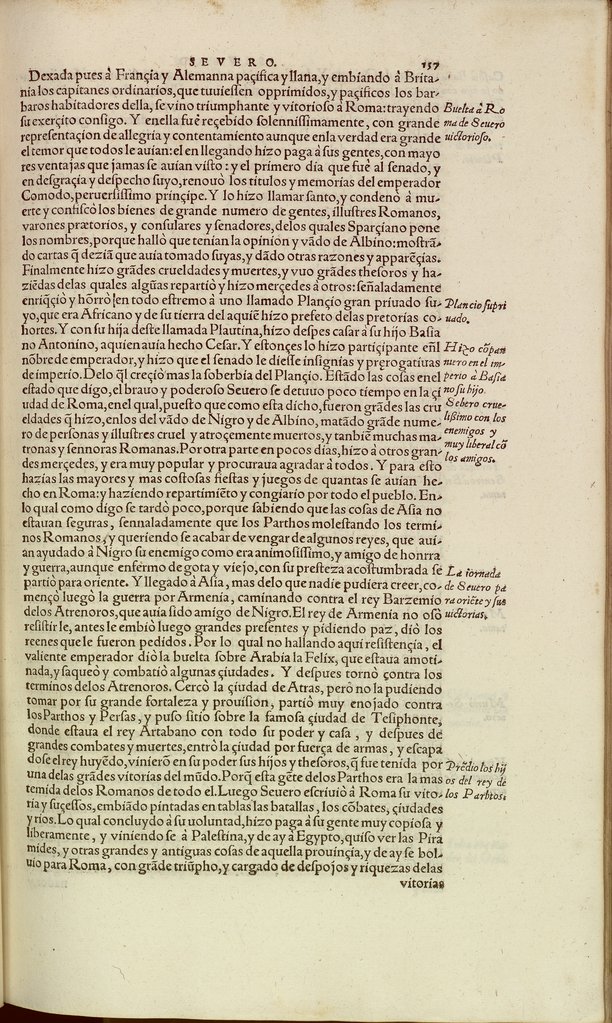 SEVERO. 157
Dexada pues à Françia y Alemanna paçifica y llana, y embiando à Brita-
nia los capitanes ordinarios, que tuuiessen opprimidos, y paçificos los bar-
baros habitadores della, se vino triumphante y vitorioso à Roma: trayendo
su exerçito consigo. Y enella fuè reçebido solennissimamente, con grande
representaçion de allegria y contentamiento aunque enla verdad era grande
el temor que todos le auian: el en llegando hizo paga à sus gentes, con mayo
res ventajas que jamas se auian visto: y el primero dia que fuè al senado, y
en desgraçia y despecho suyo, renouò los titulos y memorias del emperador
Comodo, peruersissimo prinçipe. Y lo hizo llamar santo, y condenò à mu-
erte y confiscò los bienes de grande numero de gentes, illustres Romanos,
varones prætorios, y consulares y senadores, delos quales Sparçiano pone
los nombres, porque hallò que tenian la opinion y vãdo de Albino: mostrã-
do cartas q̃ deziã que auia tomado suyas, y dãdo otras razones y apparẽçias.
Finalmente hizo grãdes crueldades y muertes, y vuo grãdes thesoros y ha-
ziẽdas delas quales algũas repartiò y hizo merçedes à otros: señaladamente
enriq̃çiò y hõrrò en todo estremo à uno llamado Plançio gran priuado su-
yo, que era Africano y de su tierra del aquiẽ hizo prefeto delas pretorias co-
hortes. Y con su hija deste llamada Plautina, hizo despes casar à su hijo Basia
no Antonino, aquien auia hecho Cesar. Y estonçes lo hizo partiçipante eñl
nõbre de emperador, y hizo que el senado le diesse insignias y prerogatiuas
de imperio. Delo q̃l creçiò mas la soberbia del Plançio. Estãdo las cosas enel
estado que digo, el brauo y poderoso Seuero se detuuo poco tiempo en la çi
udad de Roma, enel qual, puesto que como esta dicho, fueron grãdes las cru
eldades q̃ hizo, enlos del vãdo de Nigro y de Albino, matãdo grãde nume-
ro de personas y illustres cruel y atroçemente muertos, y tanbiẽ muchas ma-
tronas y sennoras Romanas. Por otra parte en pocos dias, hizo à otros gran-
des merçedes, y era muy popular y procuraua agradar à todos. Y para esto
hazias las mayores y mas costosas fiestas y juegos de quantas se auian he-
cho en Roma: y haziendo repartimiẽto y congiario por todo el pueblo. En-
lo qual como digo se tardò poco, porque sabiendo que las cosas de Asia no
estauan seguras, sennaladamente que los Parthos molestando los termi-
nos Romanos, y queriendo se acabar de vengar de algunos reyes, que aui-
an ayudado à Nigro su enemigo como era animosissimo, y amigo de honrra
y guerra, aunque enfermo de gota y viejo, con su presteza acostumbrada se
partiò para oriente. Y llegado à Asia, mas delo que nadie pudiera creer, co-
mençò luegò la guerra por Armenia, caminando contra el rey Barzemio
delos Atrenoros, que auia sido amigo de Nigro. El rey de Armenia no osò
resistirle, antes le embiò luego grandes presentes y pidiendo paz, diò los
reenes que le fueron pedidos. Por lo qual no hallando aqui resistençia, el
valiente emperador diò la buelta sobre Arabia la Felix, que estaua amoti-
nada, y saqueò y combatiò algunas çiudades. Y despues tornò contra los
terminos delos Atrenoros. Cercò la çiudad de Atras, però no la pudiendo
tomar por su grande fortaleza y prouision, partiò muy enojado contra
los Parthos y Persas, y puso sitio sobre la famosa çiudad de Tesiphonte,
donde estaua el rey Artabano con todo su poder y casa, y despues de
grandes combates y muertes, entrò la çiudad por fuerça de armas, y escapa
dose el rey huyẽdo, vinierõ en su poder sus hijos y thesoros, q̃ fue tenida por
una delas grãdes vitorias del mũdo. Porq̃ esta gẽte delos Parthos era la mas
temida delos Romanos de todo el. Luego Seuero escriuiò à Roma su vito-
ria y suçessos, embiãdo pintadas en tablas las batallas, los cõbates, çiudades
y rios. Lo qual concluydo à su uoluntad, hizo paga à su gente muy copiosa y
liberamente, y viniendo se à Palestina, y de ay à Egypto, quiso ver las Pira
mides, y otras grandes y antiguas cosas de aquella prouinçia, y de ay se bol-
uio para Roma, con grãde triũpho, y cargado de despojos y riquezas delas
vitorias
Buelta à Ro
ma de Seuero
uictorioso.
Plancio su pri
uado.
Hizo cõpañ
nero en el im-
perio à Basia
no su hijo.
Sebero crue-
lissimo con los
enemigos y
muy liberal cõ
los amigos.
La iornada
de Seuero pa
ra oriẽte y sus
uictorias.
Prẽdio los hij
os del rey de
los Parthos.